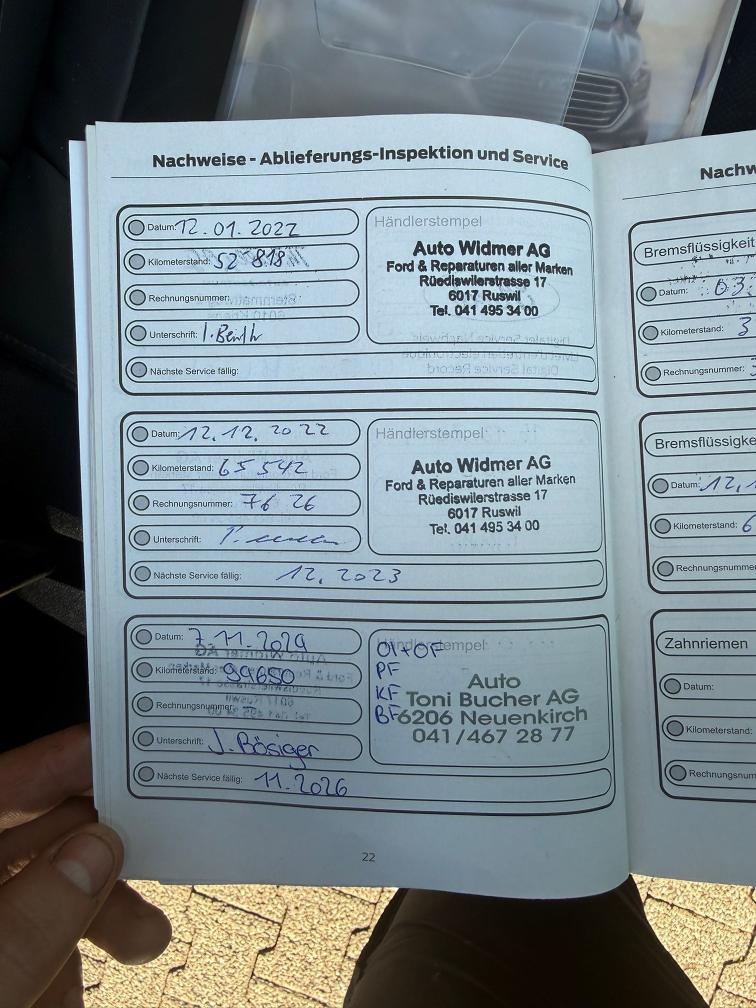 Nachweise - Ablieferungs-Inspektion und Service
Datum: 12.01.2022
Kilometerstand: 52 818
Rechnungsnummer:
Unterschrift:
Nächste Service fällig:
Händlerstempel
Auto Widmer AG
Ford & Reparaturen aller Marken
Rüediswilerstrasse 17
6017 Ruswil
Tel. 041 495 34 00
Datum: 12.12.2022
Kilometerstand: 65 542
Rechnungsnummer: 76 26
Unterschrift:
Nächste Service fällig: 12.2023
Händlerstempel
Auto Widmer AG
Ford & Reparaturen aller Marken
Rüediswilerstrasse 17
6017 Ruswil
Tel. 041 495 34 00
Datum: 7.11.2024
Kilometerstand: 99650
Rechnungsnummer: -
Unterschrift: J. Bösiger
Nächste Service fällig: 11.2026
Händlerstempel
Öl+ÖF
PF
KF
BF
Auto
Toni Bucher AG
6206 Neuenkirch
041/467 28 77
22
Nachw
Bremsflüssigkeit
Datum: 03.
Kilometerstand: 3
Rechnungsnummer:
Bremsflüssigke
Datum: 12.1
Kilometerstand: 6
Rechnungsnumme
Zahnriemen
Datum:
Kilometerstand:
Rechnungsnum